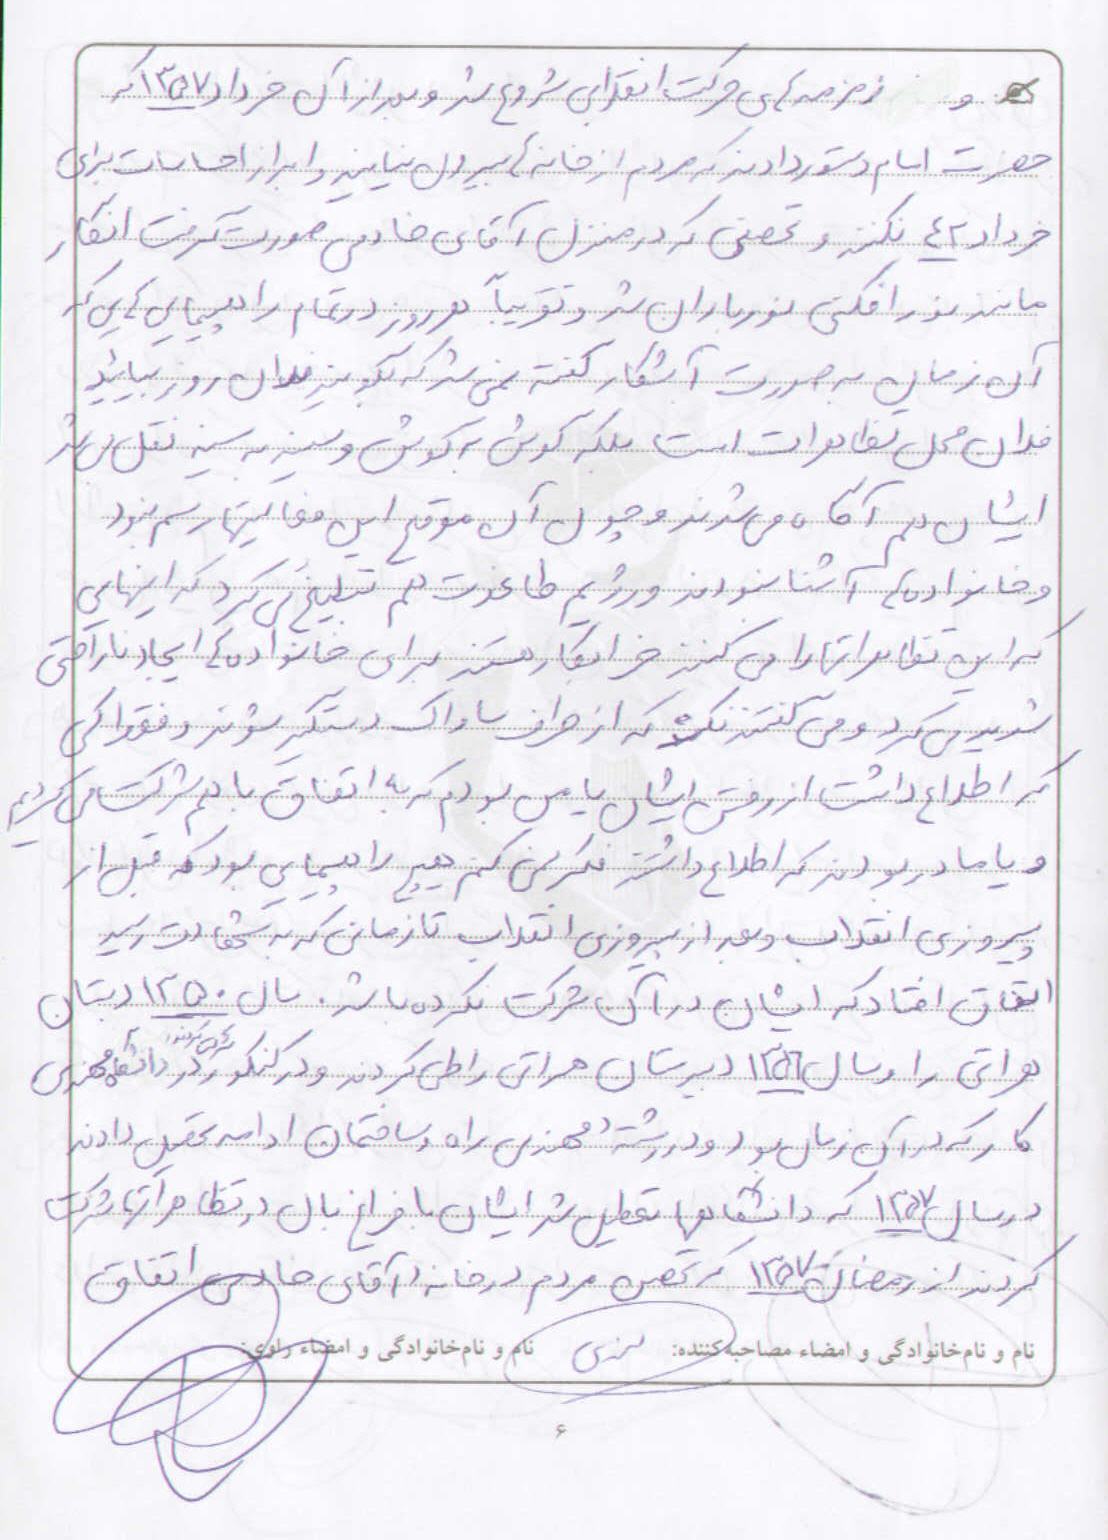 و زمزمه های حرکت انقلابی شروع شد و بعد از آن خرداد ۱۳۵۷ که
حضرت امام دستور دادند که مردم از خانه ها بیرون نیایند و ابراز احساسات برای
خرداد ۴۲ نکنند و تحصنی که در منزل آقای خادمی صورت گرفت انگار
مانند نورافکنی نورباران شد و تقریباً هر روز در تمام راهپیمایی هایی که
آن زمان به صورت آشکار گفته نمی شد که بگویند فلان روز بیائید
فلان محل تظاهرات است بلکه گوش به گوش و سینه به سینه نقل می شد
ایشان هم آگاه می شدند و چون آن موقع این فعالیتها رسم نبود
و خانواده ها آشنا نبودند و رژیم طاغوت هم تبلیغ می کرد که اینهایی
که این تظاهراتها را می کنند خرابکار هستند برای خانواده ها ایجاد ناراحتی
شدید می کرد و می گفتند نکند که از طرف ساواک دستگیر شوند و فقط کسی
که اطلاع داشت از رفتن ایشان یا من بودم که به اتفاق با هم شرکت می کردیم
و یا مادر بودند که اطلاع داشتند فکر نمی کنم هیچ راهپیمایی بود که قبل از
پیروزی انقلاب و بعد از پیروزی انقلاب تا زمانی که به شهادت رسید
اتفاق افتاد که ایشان در آن شرکت نکرده باشد. سال ۱۳۵۰ دبستان
هراتی را و سال ۱۳۵۶ دبیرستان هراتی را طی کردند و در کنکور شرکت کردند در دانشگاه مهندسی
کار که در آن زمان بود و در رشته مهندسی راه و ساختمان ادامه تحصیل دادند
در سال ۱۳۵۷ که دانشگاهها تعطیل شد ایشان با فراغ بال در تظاهراتها شرکت
کردند از رمضان ۱۳۵۷ که تحصن مردم در خانه آقای خادمی اتفاق
نام و نام خانوادگی و امضاء مصاحبه کننده: نام و نام خانوادگی و امضاء راوی:
۶